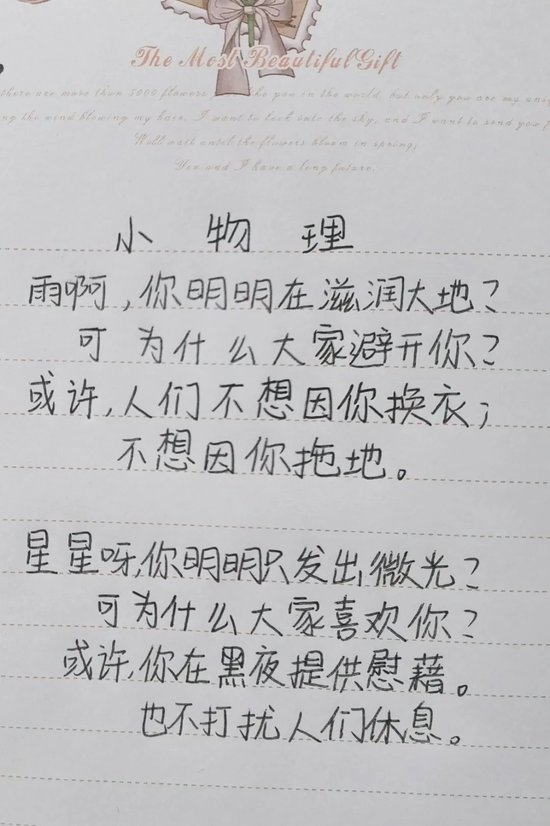 The Most Beautiful Gift
there are more than 5000 flowers the world, but only you are my
ng the wind blowing my hair. I want to look into the sky, and I want to send you
Well wait until the flowers bloom in spring,
You and I have a long future.
小物理
雨啊,你明明在滋润大地?
可为什么大家避开你?
或许,人们不想因你换衣;
不想因你拖地。
星星呀,你明明只发出微光?
可为什么大家喜欢你?
或许,你在黑夜提供慰藉。
也不打扰人们休息。